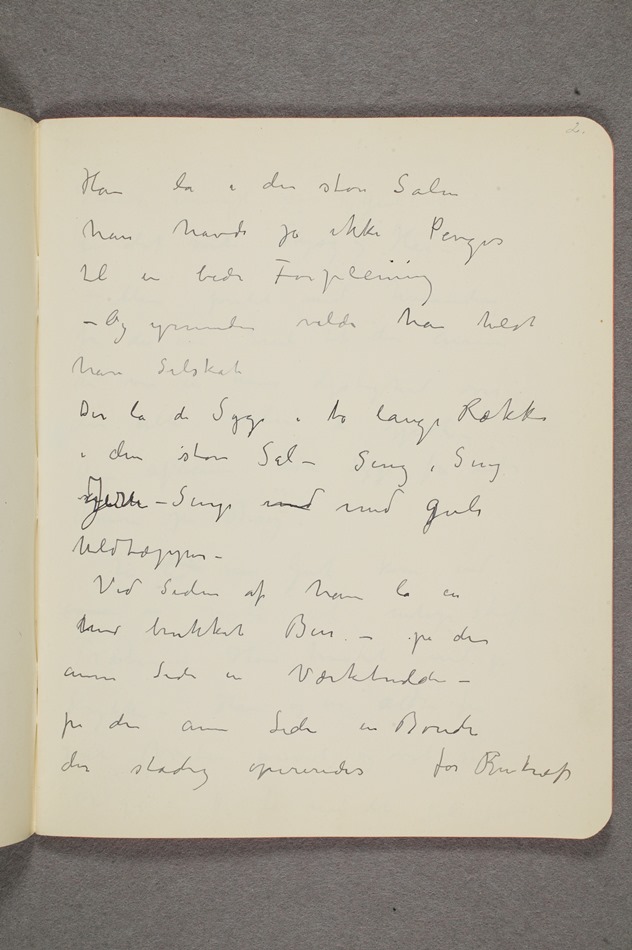 2.
Han la i den store Salen
han havde jo ikke Penges
til en bedre Forpleining
– Og  vilde han helst
have Selskab
Der la de Syge i to lange Rækker
i den store Sal – Seng i Seng
Jern – Senge med gule
Uldtæpper –
Ved Siden af ham la en
med brukket Ben. – på den
anen Side en
på den anen Side en Bonde
der stadig opereredes for Benkræft